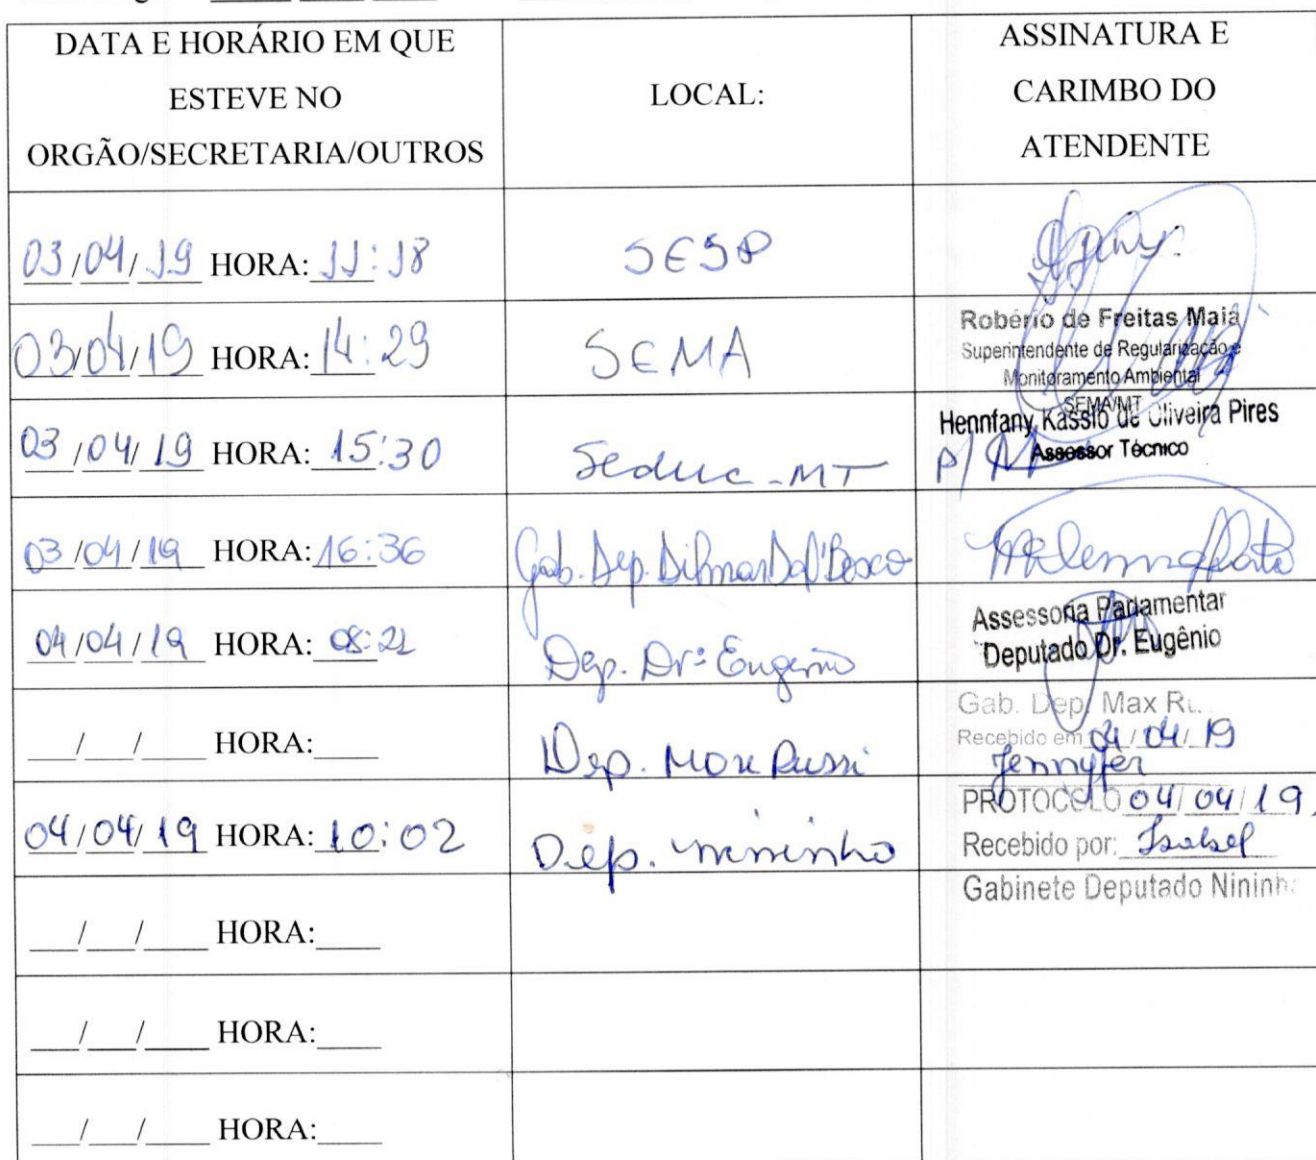 DATA E HORÁRIO EM QUE
ESTEVE NO
ORGÃO/SECRETARIA/OUTROS
LOCAL:
ASSINATURA E
CARIMBO DO
ATENDENTE
03/04/19 HORA: 11:18
SESP
03/04/19 HORA: 14:29
SEMA
Robério de Freitas Maia
Superintendente de Regularização e
Monitoramento Ambiental
SEMA/MT
03/04/19 HORA: 15:30
Seduc-MT
Hennfany Kassio de Oliveira Pires
Assessor Técnico
P/
03/04/19 HORA: 16:36
Gab. Dep. Dilmar Dal'Bosco
04/04/19 HORA: 08:21
Dep. Drº Eugenio
Assessoria Parlamentar
Deputado Dr. Eugênio
__/__/____ HORA:____
Dep. Max Russi
Gab. Dep. Max Ru
Recebido em 04/04/19
Jennyfer
04/04/19 HORA: 10:02
Dep. nininho
PROTOCOLO 04/04/19
Recebido por: Isabel
Gabinete Deputado Nininho
__/__/____ HORA:____
__/__/____ HORA:____
__/__/____ HORA:____